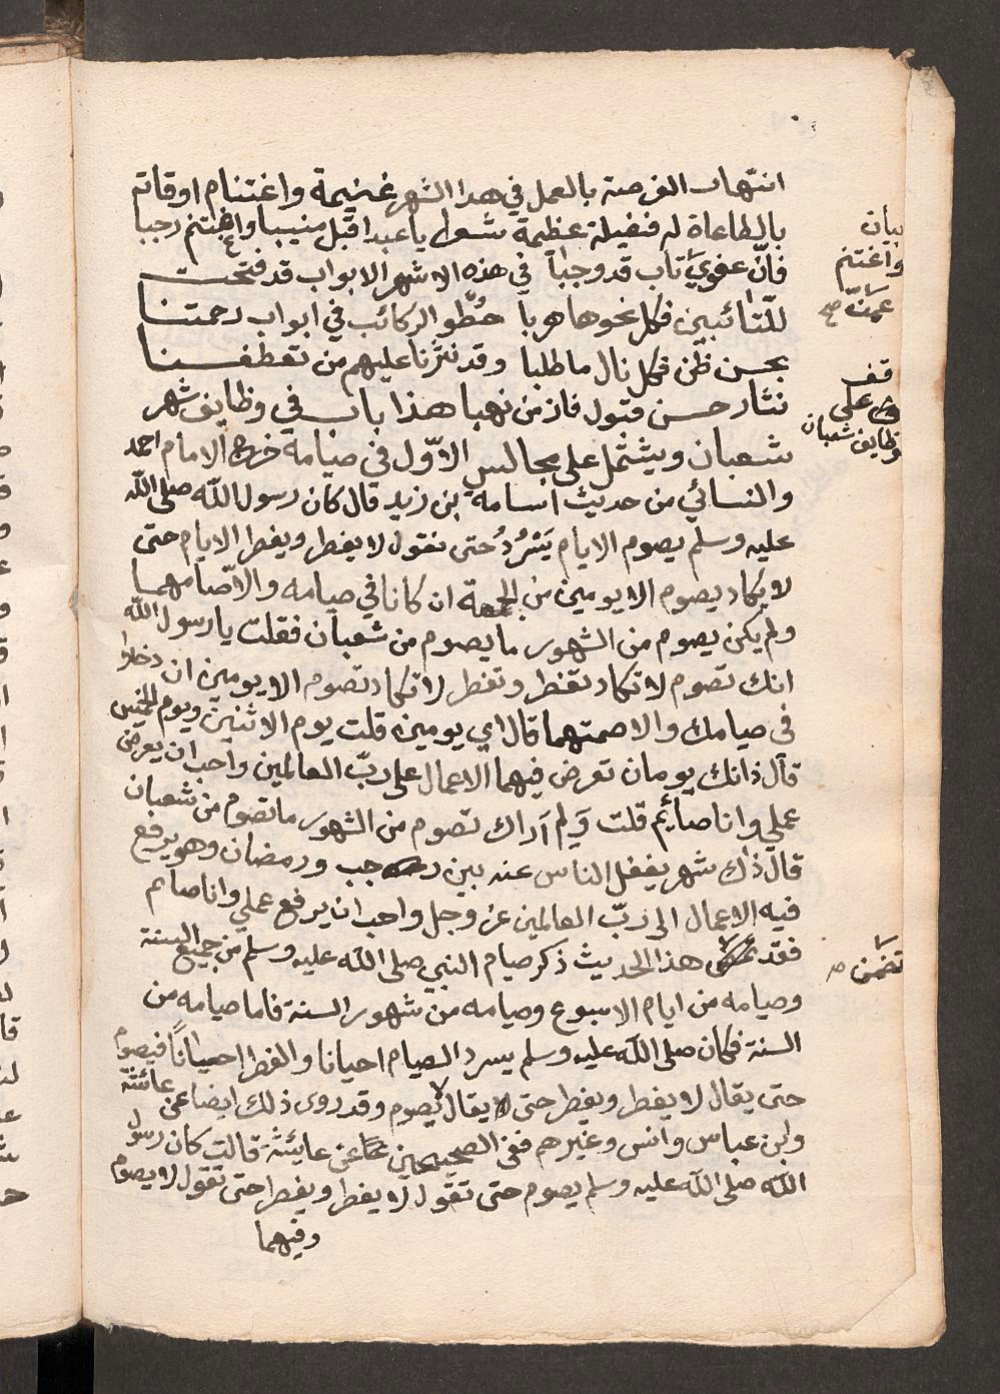 انتهاب الفرصة بالعمل في هذا الشهر غنيمة واغتنام اوقاته
بالطاعاة له فضيلة عظيمة شعرا يا عبدا قبل منيبا واغتنم رجبا
فانّ عفويَ تاب قد وجباً في هذه الاشهر الابواب قد فتحت
للتائبين فكل نحوها هربا حُطّو الركائب في ابواب رحمتنا
بحسن ظن فكل نال ما طلبا وقد نثرنا عليهم من تعطفنا
نثار حسن قبول فاز من نهبا هذا باب في وظايف شهر
شعبان ويشتمل على مجالس الاوّل في صيامه خرج الامام احمد
والنسائي من حديث اسامة بن زيد قال كان رسول الله صلى الله
عليه وسلم يصوم الايام يَسْرُدُ حتى نقول لا يفطر ويفطر الايام حتى
لا يكاد يصوم الا يومين من الجمعة ان كانا في صيامه والا صامهما
ولم يكن يصوم من الشهور ما يصوم من شعبان فقلت يا رسول الله
انك تصوم لا تكاد تفطر وتفطر لا تكاد تصوم الا يومين ان دخلا
في صيامك والا صمتهما قال اي يومين قلت يوم الاثنين ويوم الخميس
قال ذانك يومان تعرض فيهما الاعمال على ربّ العالمين واحب ان يعرض
عملي وانا صائم قلت وَلم اراك تصوم من الشهور ما تصوم من شعبان
قال ذاك شهر يغفل الناس عنه بين رجب ورمضان وهو يرفع
فيه الاعمال الى ربّ العالمين عز وجل واحب ان يرفع عملي وانا صايم
فقد هذا الحديث ذكر صيام النبي صلى الله عليه وسلم من جميع السنة
وصيامه من ايام الاسبوع وصيامه من شهور السنة فاما صيامه من
السنة فكان صلى الله عليه وسلم يسرد الصيام احيانا والفطر احياناً فيصوم
حتى يقال لا يفطر ويفطر حتى يقال لا يصوم وقد روى ذلك ايضا عن عائشة
وابن عباس وانس وغيرهم ففي الصحيحين عن عايشة قالت كان رسول
الله صلى الله عليه وسلم يصوم حتى تقول لا يفطر ويفطر حتى تقول لا يصوم
وفيهما
بيان
واغتنم
صح
قف
على
وظايف شعبان
تضمن